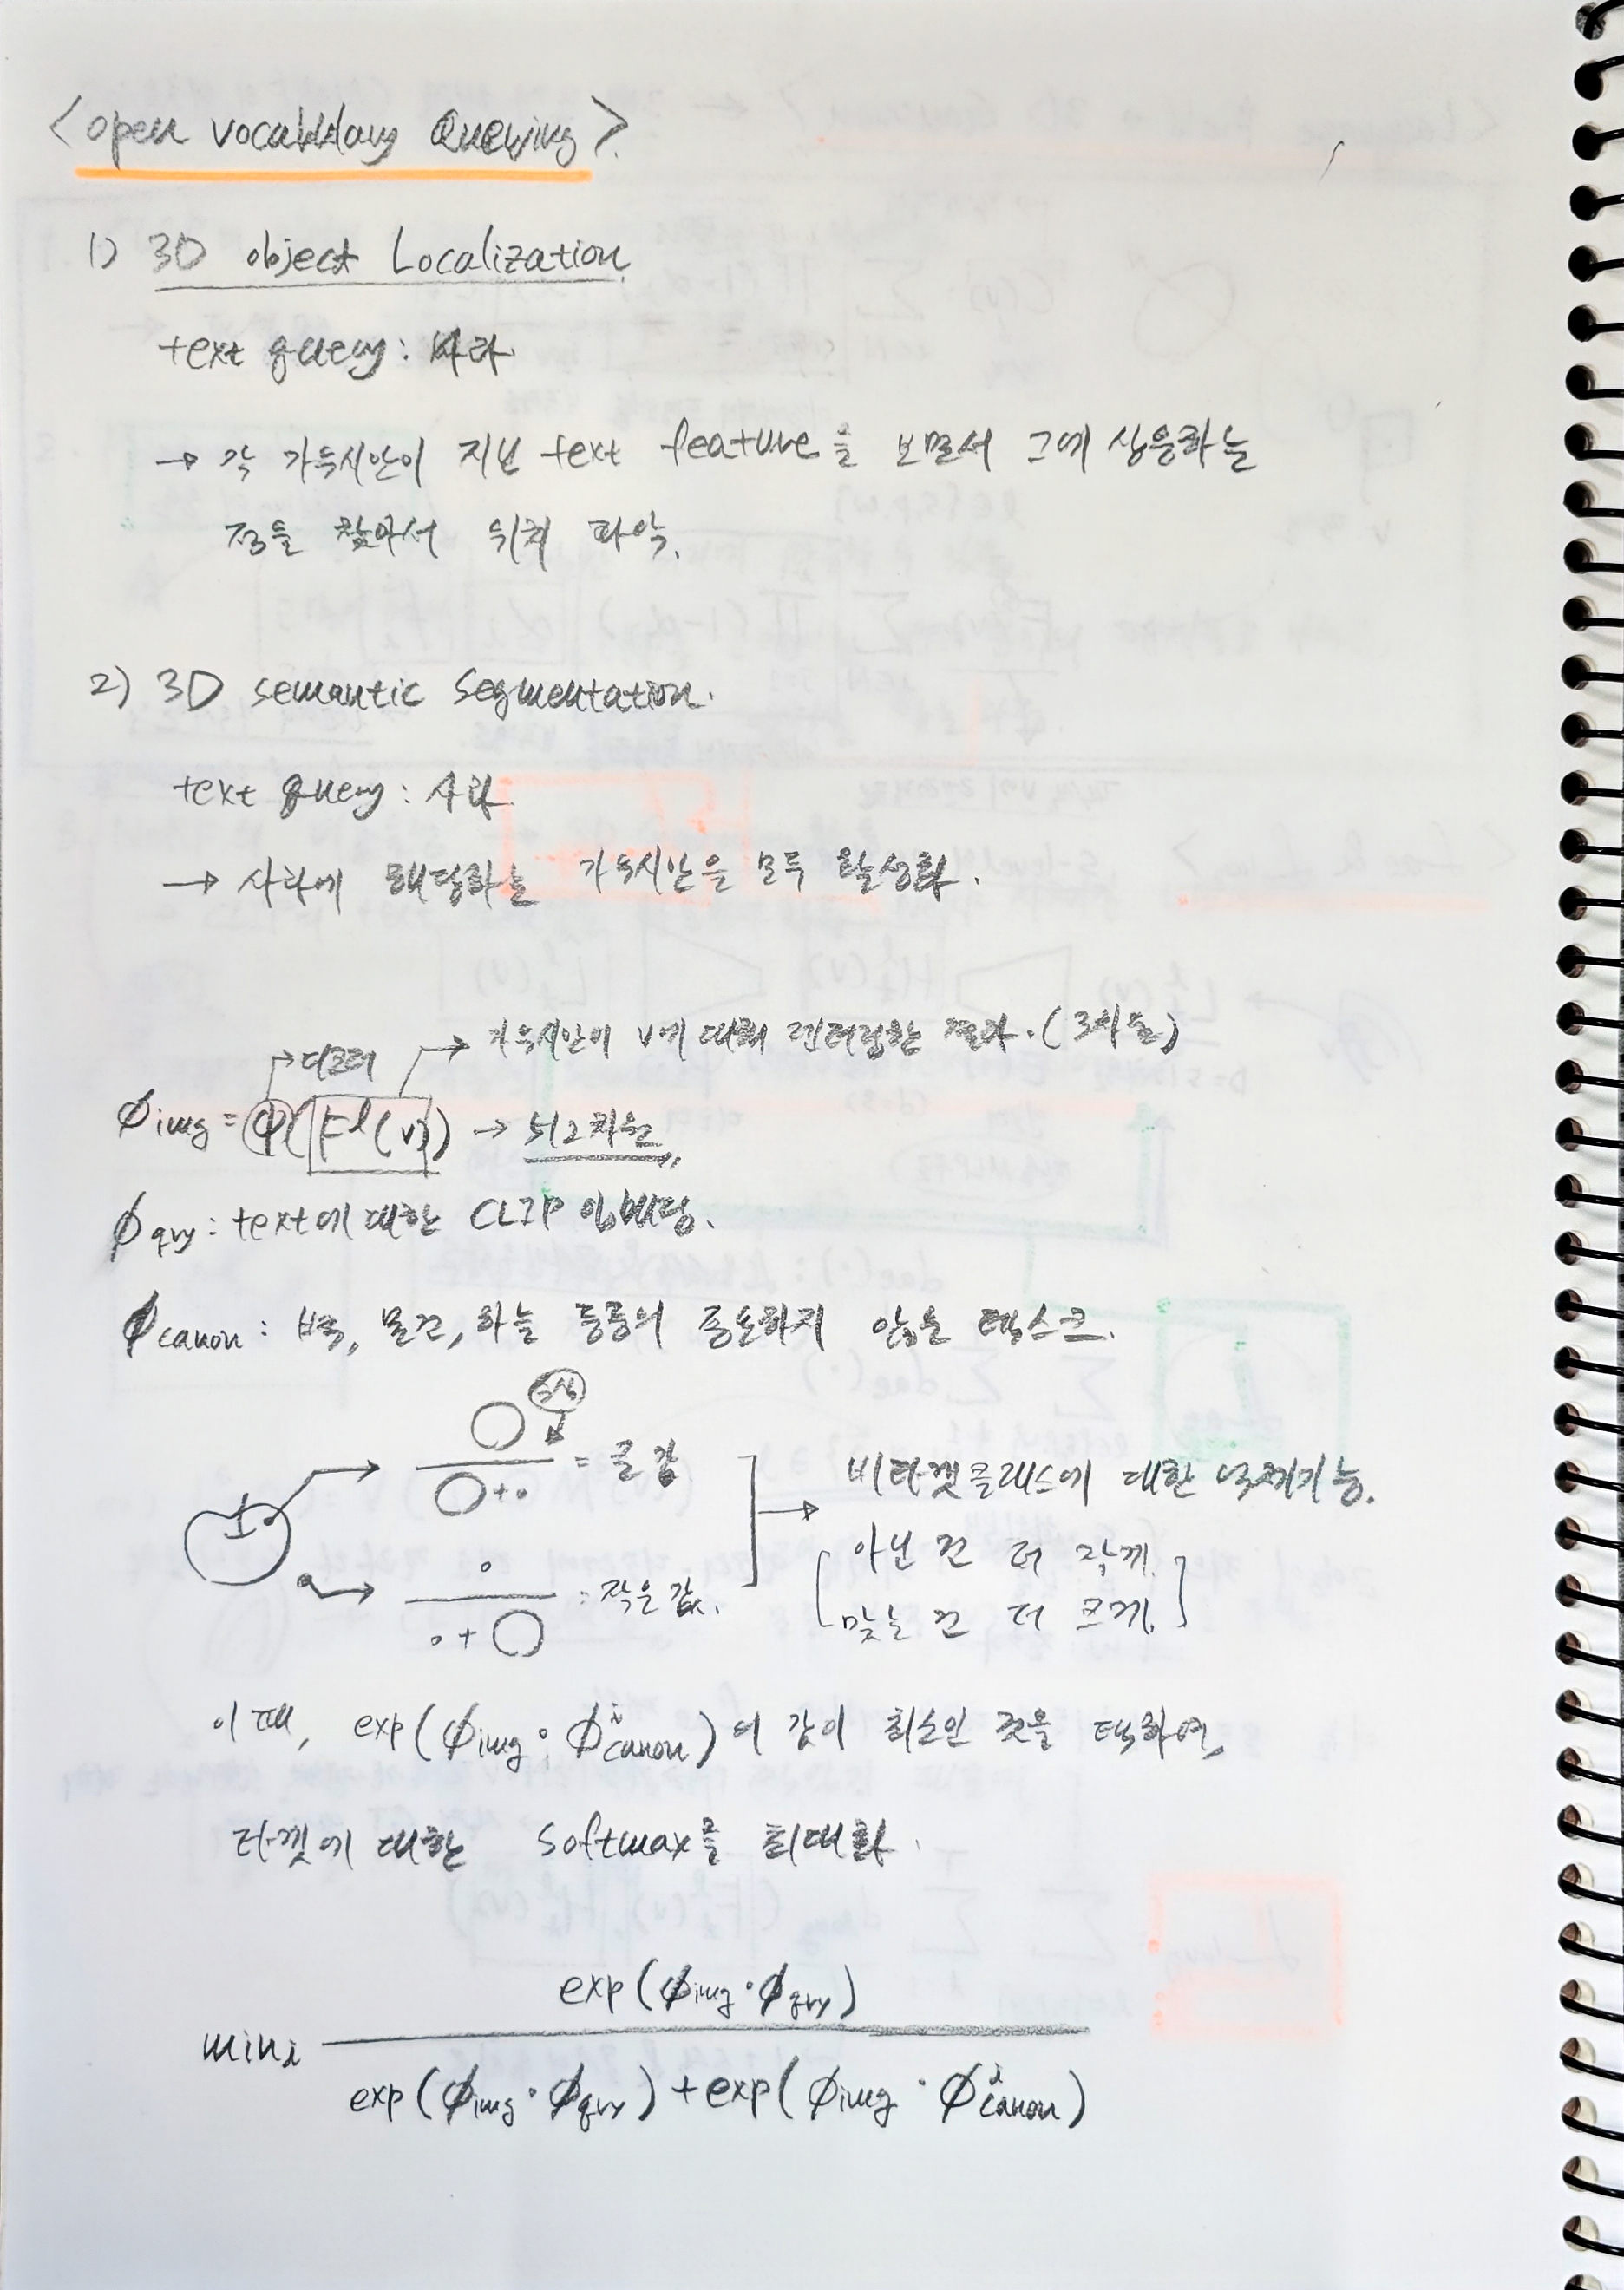 <open vocabulary Querying>
1) 3D object Localization
text query : 사과
→ 각 가우시안이 지닌 text feature를 보면서 그에 상응하는
점들 찾아서 위치 파악.
2) 3D semantic segmentation.
text query : 사과
→ 사과에 해당하는 가우시안을 모두 활성화.
→디코더 → 가우시안이 v에 대해 렌더링한 결과. (3차원)
ϕimg = Ψ(Fˡ(v)) → 512차원
ϕqry : text에 대한 CLIP 임베딩.
ϕcanon : 벽, 물건, 하늘 등등의 중요하지 않은 텍스트.
= 큰 값
비타겟클래스에 대한 억제기능.
아닌 건 더 작게.
= 작은 값.
맞는 건 더 크게.
이때, exp(ϕimg · ϕⁱcanon)의 값이 최소인 것을 택하여,
타겟에 대한 softmax를 최대화.
exp(ϕimg · ϕqry)
mini
exp(ϕimg · ϕqry) + exp(ϕimg · ϕⁱcanon)